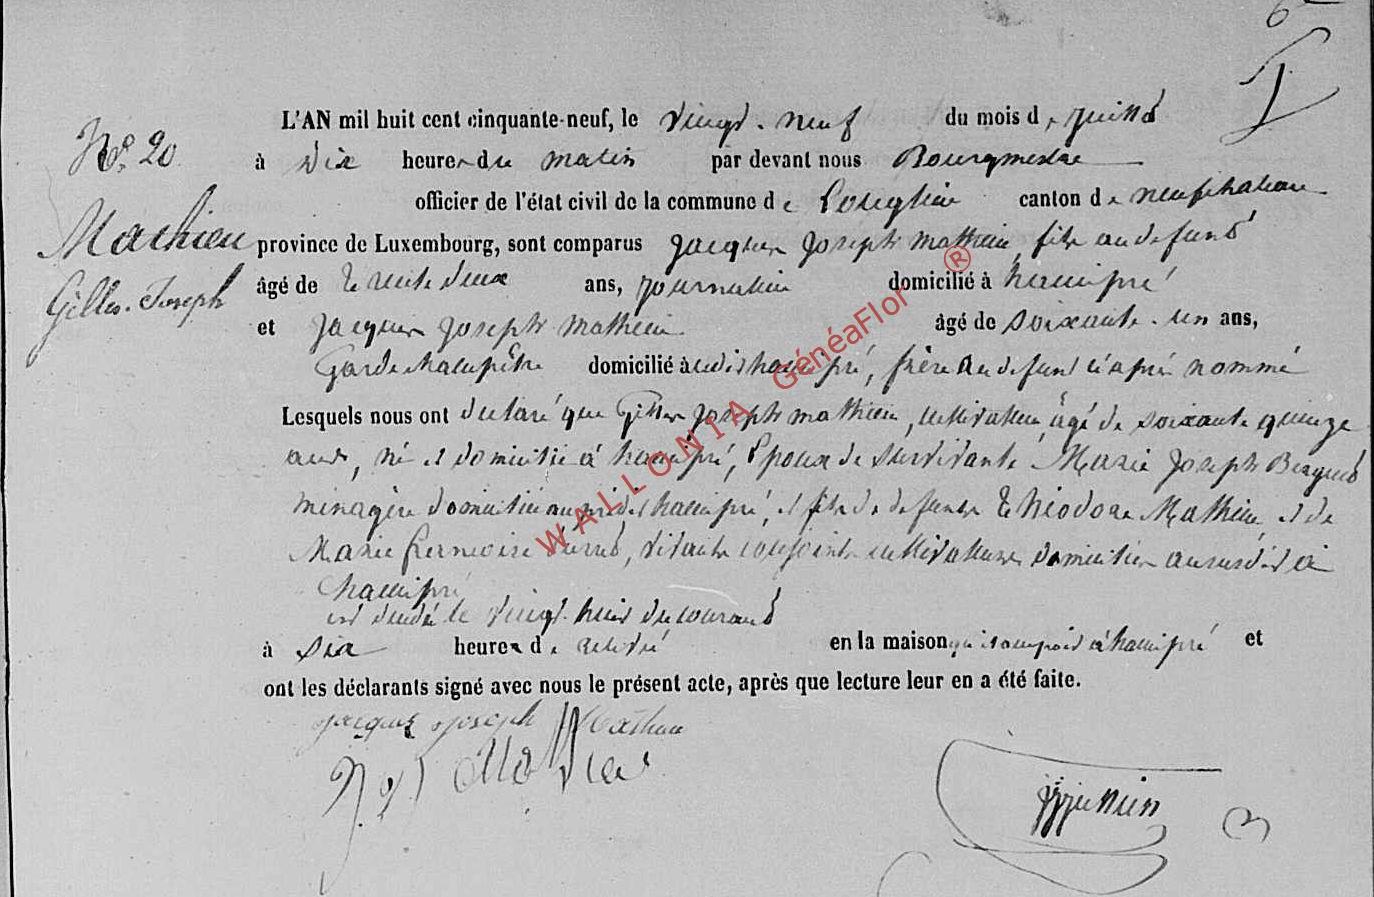 6
L'AN mil huit cent cinquante-neuf, le vingt-neuf du mois de juillet
N° 20
à dix heures du matin par devant nous Bourgmestre
officier de l'état civil de la commune de Longlier canton de neufchateau
Mathieu
province de Luxembourg, sont comparus Jacques Joseph mathieu, fils au defunt
Gilles-Joseph
âgé de trente deux ans, journalier domicilié à hamipré
et Jacques Joseph Mathieu âgé de soixante-un ans,
Garde champêtre domicilié à hamipré, frère au defunt ci après nommé
Lesquels nous ont declaré que Gilles Joseph mathieu, cultivateur, âgé de soixante quinze
ans, né et domicilié à hamipré, Epoux de survivante Marie Joseph
ménagère domiciliée hamipré, et fils de defunts Théodore Mathieu et de
Marie vivants conjoints cultivateurs domiciliés à
hamipré
est décédé le vingt-huit du courant
à six heures de relevé en la maison qu'il occupait à hamipré et
ont les déclarants signé avec nous le présent acte, après que lecture leur en a été faite.
jacques joseph Mathieu
J. J. Mathieu
WALLONIA GénéaFlor ®